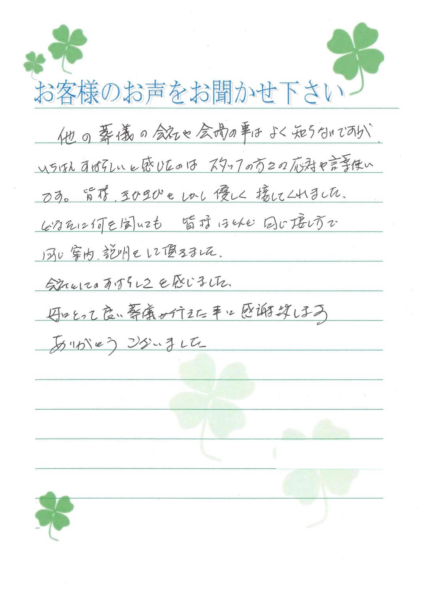 お客様のお声をお聞かせ下さい
他の葬儀の会社や会場の事は よく知らないですが、
いちばん すばらしいと感じたのは スタッフの方々の応対や言葉使い
です。皆様、きびきびと しかし優しく 接してくれました。
どなたに何を聞いても 皆様 ほとんど 同じ接し方で
同じ案内、説明をして頂きました。
会社としてのすばらしさを感じました。
母にとって良い葬儀が行えた事に感謝致します
ありがとう ございました